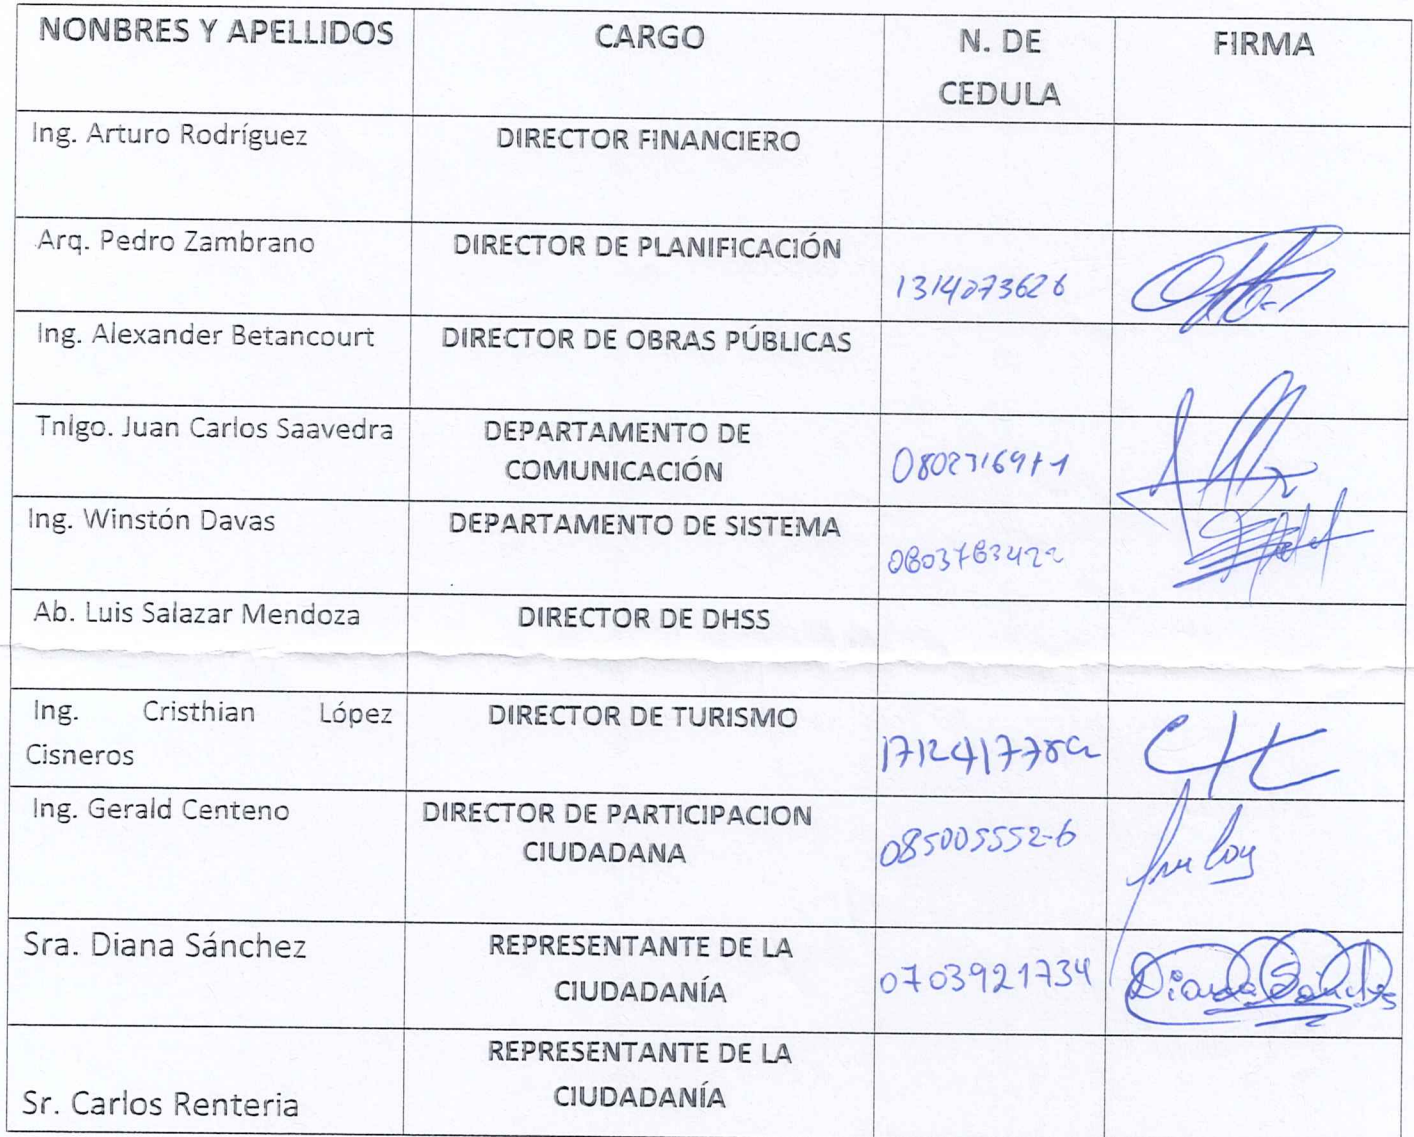 NONBRES Y APELLIDOS CARGO N. DE CEDULA FIRMA
Ing. Arturo Rodríguez DIRECTOR FINANCIERO
Arq. Pedro Zambrano DIRECTOR DE PLANIFICACIÓN 1314073626
Ing. Alexander Betancourt DIRECTOR DE OBRAS PÚBLICAS
Tnlgo. Juan Carlos Saavedra DEPARTAMENTO DE
COMUNICACIÓN
Ing. Winstón Davas DEPARTAMENTO DE SISTEMA 0803783422
Ab. Luis Salazar Mendoza DIRECTOR DE DHSS
Ing. Cristhian López DIRECTOR DE TURISMO
Cisneros
Ing. Gerald Centeno DIRECTOR DE PARTICIPACION
CIUDADANA 085005552-6
Sra. Diana Sánchez REPRESENTANTE DE LA
CIUDADANÍA 0703921734 Diana Sánchez
REPRESENTANTE DE LA
Sr. Carlos Renteria CIUDADANÍA